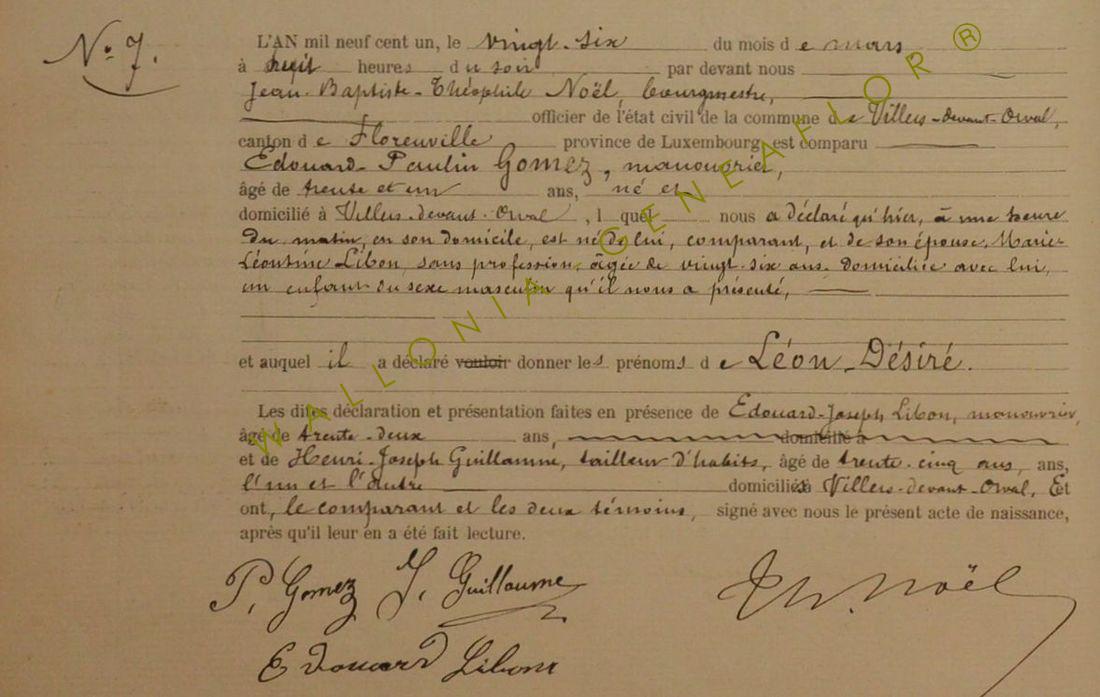 N° 7.
L'AN mil neuf cent un, le vingt-six du mois de mars
à huit heures du soir par devant nous
Jean-Baptiste-Théophile Noël, bourgmestre,
officier de l'état civil de la commune de Villers-devant-Orval,
canton de Florenville province de Luxembourg, est comparu
Edouard-Paulin Gomez, manouvrier,
âgé de trente et un ans, né et
domicilié à Villers-devant-Orval, lequel nous a déclaré qu'hier, à une heure
du matin, en son domicile, est né de lui, comparant, et de son épouse, Marie-
Léontine Libon, sans profession, âgée de vingt-six ans, domiciliée avec lui,
un enfant du sexe masculin qu'il nous a présenté,
et auquel il a déclaré vouloir donner les prénoms de Léon-Désiré.
Les dites déclaration et présentation faites en présence de Edouard-Joseph Libon, manouvrier,
âgé de trente-deux ans, domicilié à
et de Henri-Joseph Guillaume, tailleur d'habits, âgé de trente-cinq ans, ans,
l'un et l'autre domiciliés à Villers-devant-Orval, Et
ont, le comparant et les deux témoins, signé avec nous le présent acte de naissance,
après qu'il leur en a été fait lecture.
P. Gomez J. Guillaume Th. Noël
Edouard Libon
WALLONIA GENEAFLOR ®